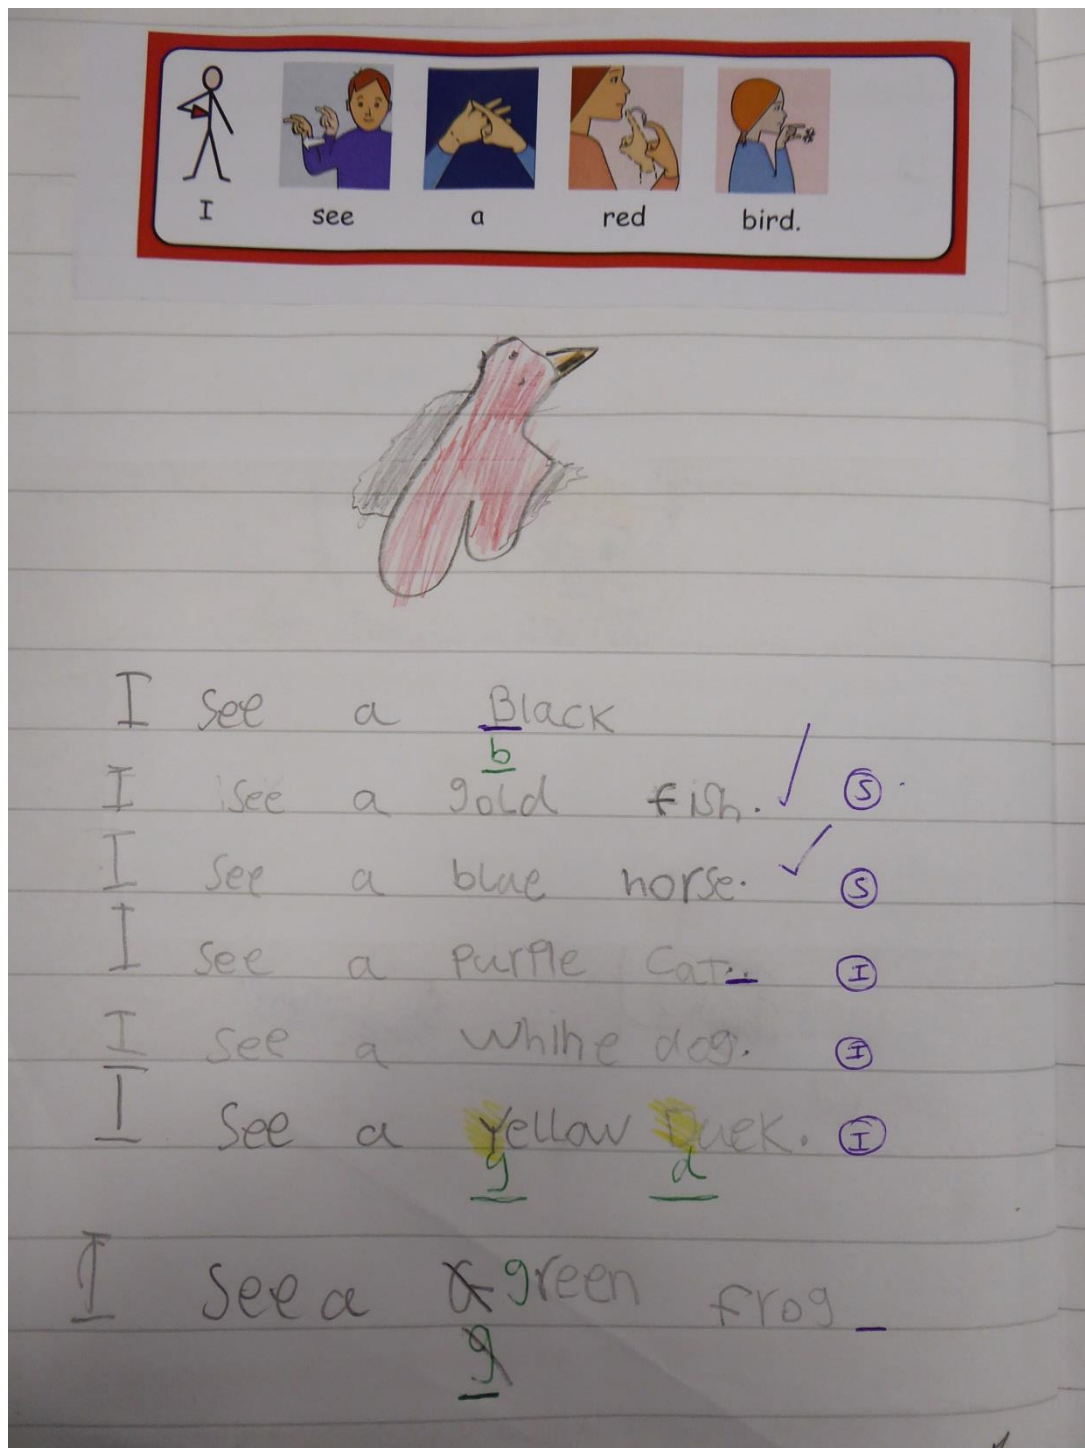 I see a red bird.
I see a Black
b
I see a gold fish. S
I see a blue horse. S
I see a purple cat. I
I see a whihe dog. I
I see a Yellow Duck. I
y d
I see a G green frog
g